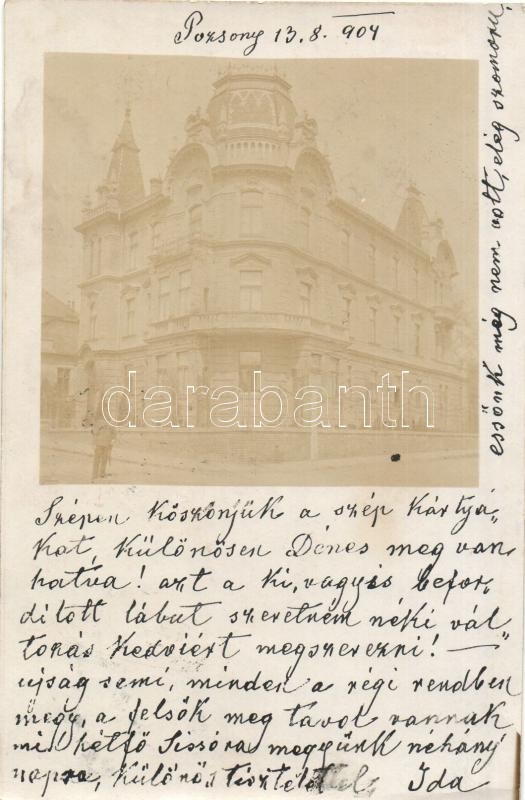 Pozsony 13.8. 904
essőnk még nem volt, elég szomorú.
darabanth
Szépen köszönjük a szép kártyá-
kat, különösen Dénes meg van
hatva! azt a ki, vagyis befor-
ditott lábut szeretném néki vál
tozás kedviért megszerezni! —
ujság semi, minden a régi rendben
megy, a felsők meg távol vannak
mi hétfő Sissóra megyünk néhány
napra, különös tisztelettel, Ida